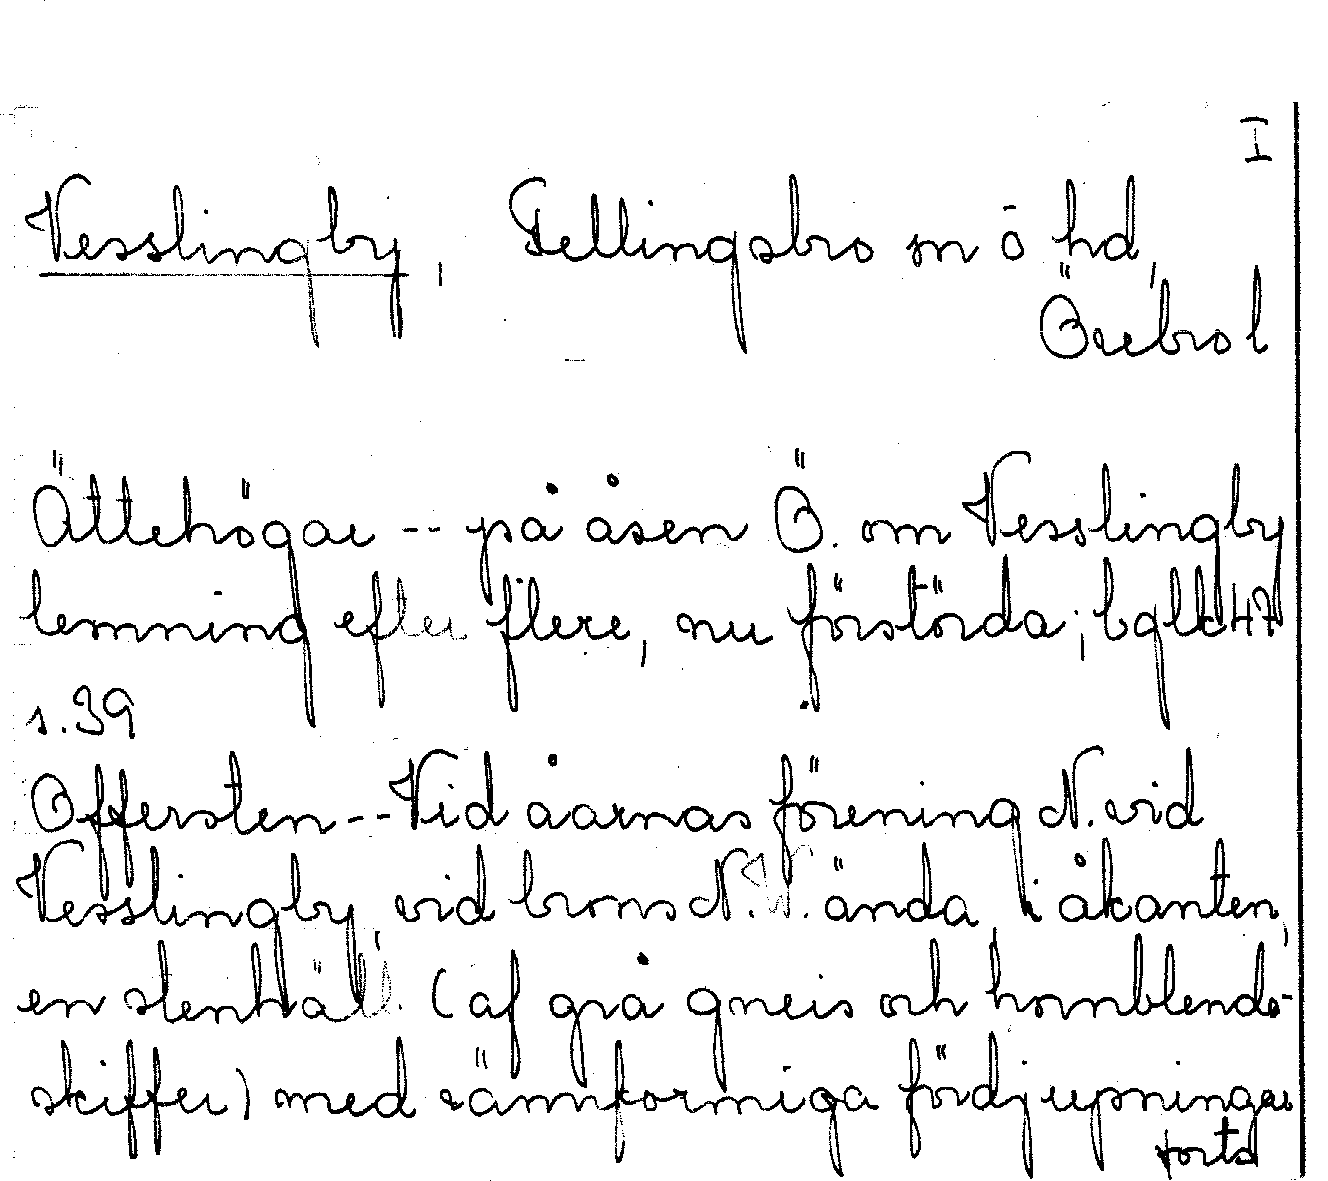 I
Vesslingby, Fellingsbro sn ö hd,
Örebro l
Ättehögar -- på åsen Ö. om Vesslingby
lemning efter flere, nu förstörda; bglk 47
s. 39
Offersten -- Vid åarnas förening N. vid
Vesslingby, vid brons N.V. ända i åkanten,
en stenhäll. (af grå gneis och hornblende-
skiffer) med rännformiga fördjupningar
forts